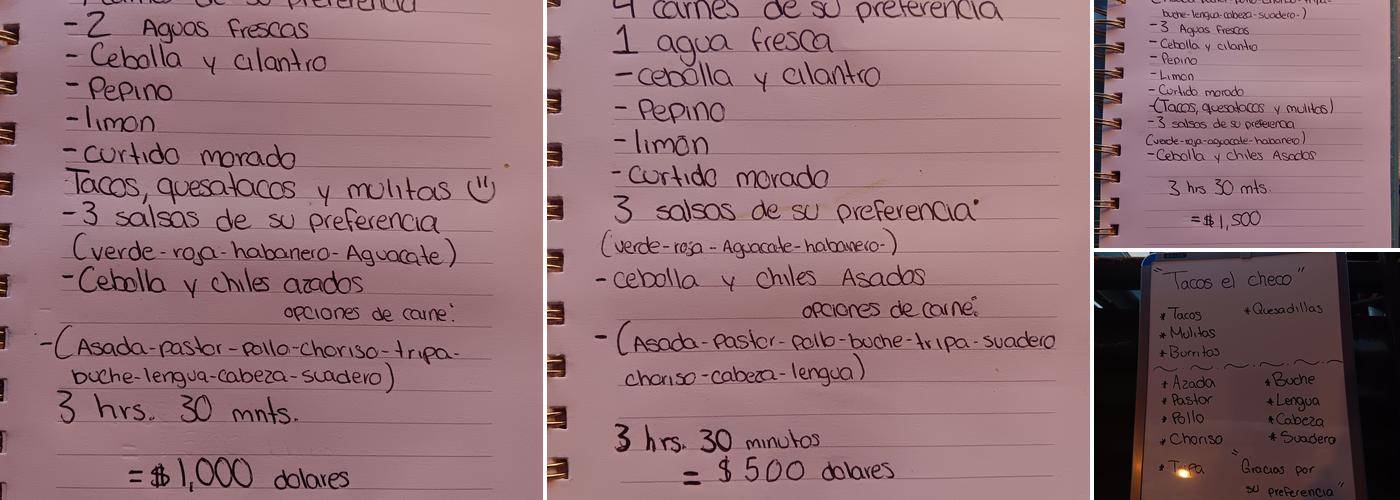 de su preferencia
-2 Aguas frescas
-Cebolla y cilantro
-Pepino
-limon
-curtido morado
Tacos, quesatacos y mulitas (")
-3 salsas de su preferencia
(verde-roja-habanero-Aguacate)
-Cebolla y chiles azados
opciones de carne:
-(Asada-pastor-pollo-choriso-tripa-
buche-lengua-cabeza-suadero)
3 hrs. 30 mnts.
=$1,000 dolares
4 carnes de su preferencia
1 agua fresca
-cebolla y cilantro
-Pepino
-limón
-curtido morado
3 salsas de su preferencia
(verde-roja-Aguacate-habanero-)
-cebolla y chiles Asados
opciones de carne:
-(Asada-pastor-pollo-buche-tripa-suadero
choriso-cabeza-lengua)
3 hrs. 30 minutos
= $500 dolares
buche-lengua-cabeza-suadero-)
-3 Aguas Frescas
-Cebolla y cilantro
-Pepino
-Limon
-Curtido morado
-(Tacos, quesatacos y mulitas)
-3 salsas de su preferencia
(verde-roja-aguacate-habanero)
-Cebolla y chiles Asados
3 hrs 30 mts.
=$1,500
"Tacos el checo"
*Tacos *Quesadillas
*Mulitas
*Burritos
*Azada *Buche
*Pastor *Lengua
*Pollo *Cabeza
*Choriso *Suadero
*Tripa "Gracias por
su preferencia"